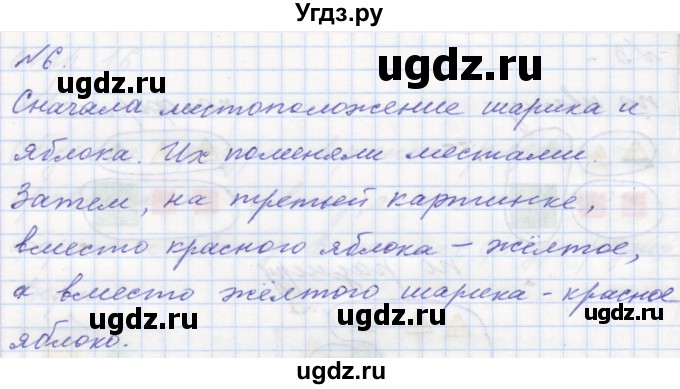 Угдз.ру
№6.
Сначала местоположение шарика и
яблока. Их поменяли местами.
Затем, на третьей картинке,
вместо красного яблока – жёлтое,
а вместо жёлтого шарика - красное
яблоко.
ugdz.ru
ugdz.ru
ugdz.ru
ugdz.ru
ugdz.ru
ugdz.ru
ugdz.ru
ugdz.ru
ugdz.ru